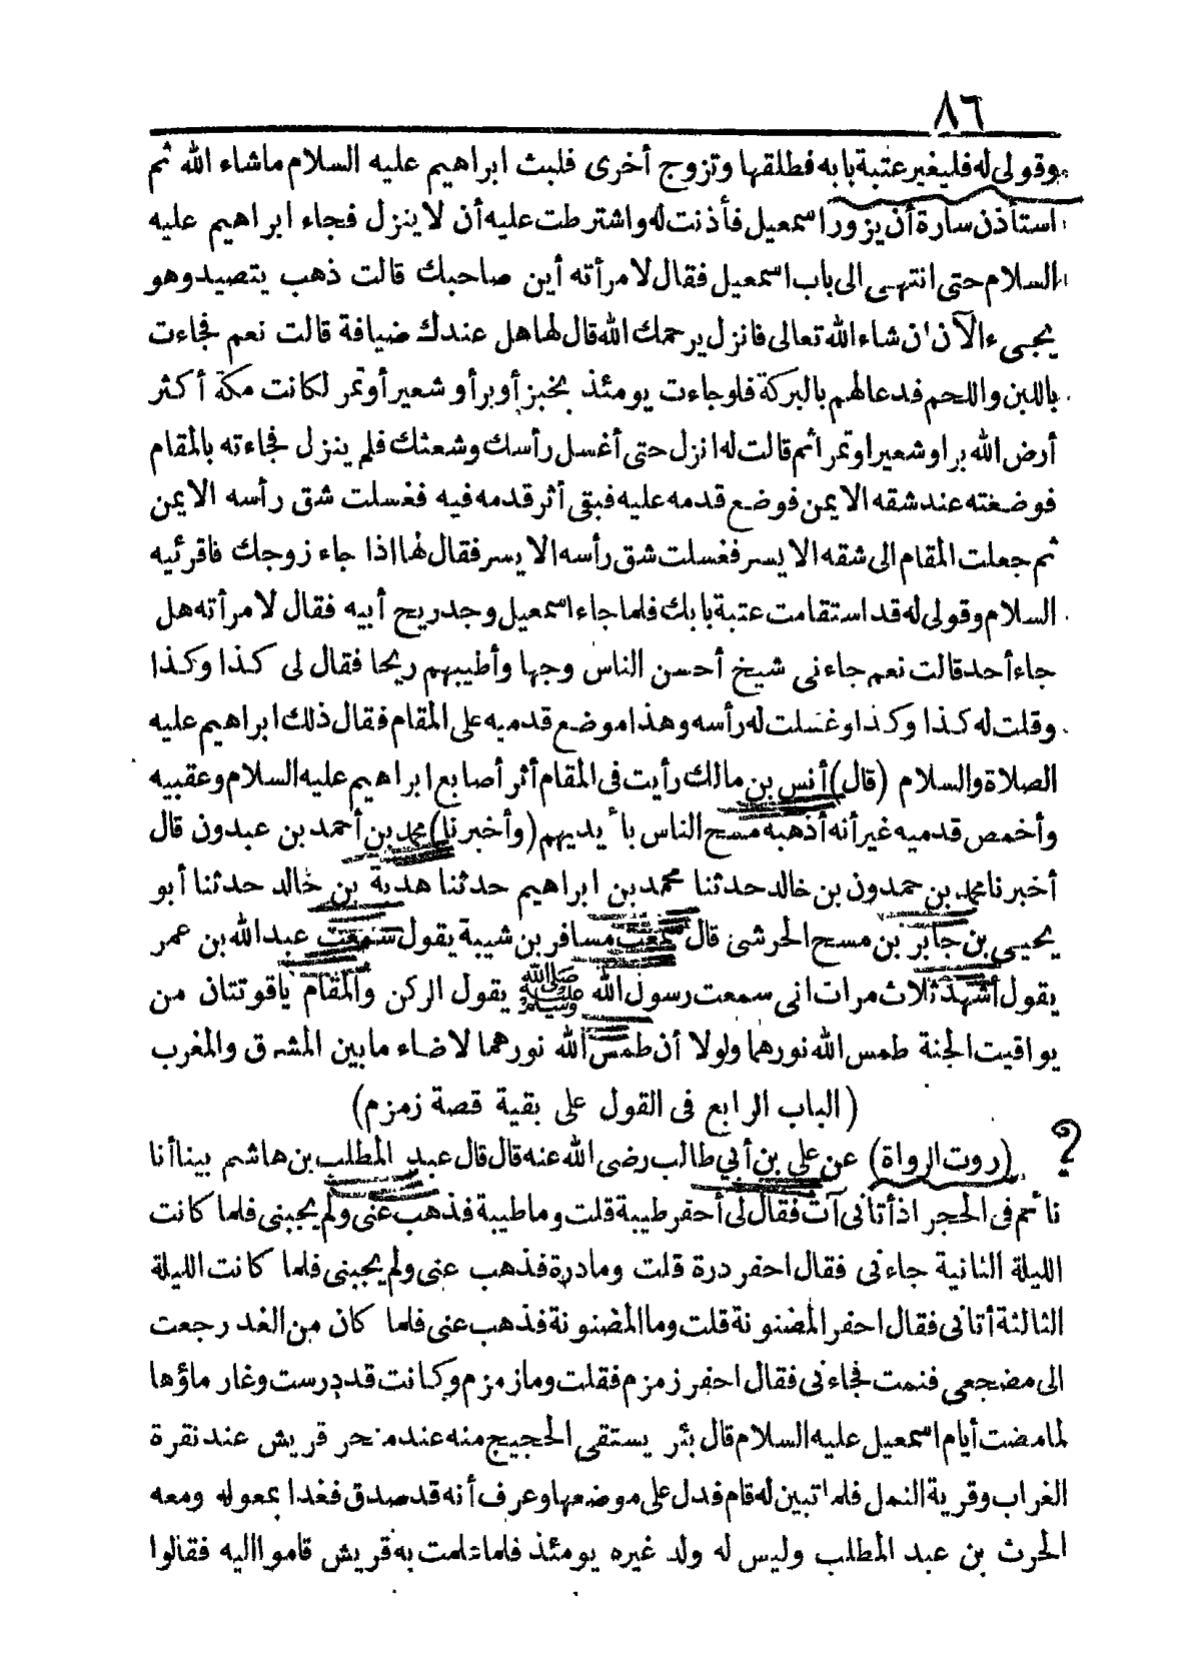 ٨٦
وقولى له فليغير عتبة بابه فطلقها وتزوج أخرى فلبث ابراهيم عليه السلام ماشاء الله ثم
استأذن سارة أن يزور اسمعيل فأذنت له واشترطت عليه أن لا ينزل فجاء ابراهيم عليه
السلام حتى انتهى الى باب اسمعيل فقال لامرأته أين صاحبك قالت ذهب يتصيد وهو
يجىء الآن ان شاء الله تعالى فانزل يرحمك الله قال لها هل عندك ضيافة قالت نعم فجاءت
باللبن واللحم فدعا لهم بالبركة فلو جاءت يومئذ بخبز أو بر أو شعير أو تمر لكانت مكة أكثر
أرض الله برا وشعيرا وتمرا ثم قالت له انزل حتى أغسل رأسك وشعثك فلم ينزل فجاءته بالمقام
فوضعته عند شقه الايمن فوضع قدمه عليه فبقى أثر قدمه فيه فغسلت شق رأسه الايمن
ثم جعلت المقام الى شقه الايسر فغسلت شق رأسه الايسر فقال لها اذا جاء زوجك فاقرئيه
السلام وقولى له قد استقامت عتبة بابك فلما جاء اسمعيل وجد ريح أبيه فقال لامرأته هل
جاء أحد قالت نعم جاءنى شيخ أحسن الناس وجها وأطيبهم ريحا فقال لى كذا وكذا
وقلت له كذا وكذا وغسلت له رأسه وهذا موضع قدميه على المقام فقال ذلك ابراهيم عليه
الصلاة والسلام (قال) أنس بن مالك رأيت فى المقام أثر أصابع ابراهيم عليه السلام وعقبيه
وأخمص قدميه غير أنه أذهبه مسح الناس بأيديهم (وأخبرنا) محمد بن أحمد بن عبدون قال
أخبرنا محمد بن حمدون بن خالد حدثنا محمد بن ابراهيم حدثنا هدبة بن خالد حدثنا أبو
يحيى بن جابر بن مسح الحرشى قال سمعت مسافر بن شيبة يقول سمعت عبد الله بن عمر
يقول أشهد ثلاث مرات انى سمعت رسول الله ﷺ يقول الركن والمقام ياقوتتان من
يواقيت الجنة طمس الله نورهما ولولا أن طمس الله نورهما لاضاء ما بين المشرق والمغرب
(الباب الرابع فى القول على بقية قصة زمزم)
؟ (روت الرواة) عن على بن أبي طالب رضى الله عنه قال قال عبد المطلب بن هاشم بينا أنا
نائم فى الحجر اذ أتانى آت فقال لى أحفر طيبة قلت وما طيبة فذهب عنى ولم يجبنى فلما كانت
الليلة الثانية جاءنى فقال احفر درة قلت وما درة فذهب عنى ولم يجبنى فلما كانت الليلة
الثالثة أتانى فقال احفر المضنونة قلت وما المضنونة فذهب عنى فلما كان من الغد رجعت
الى مضجعى فنمت فجاءنى فقال احفر زمزم فقلت وما زمزم وكانت قد درست وغار ماؤها
لما مضت أيام اسمعيل عليه السلام قال بئر يستقى الحجيج منه عند منحر قريش عند نقرة
الغراب وقرية النمل فلما تبين له قام فدل على موضعها وعرف أنه قد صدق فغدا بمعوله ومعه
الحرث بن عبد المطلب وليس له ولد غيره يومئذ فلما علمت به قريش قاموا اليه فقالوا